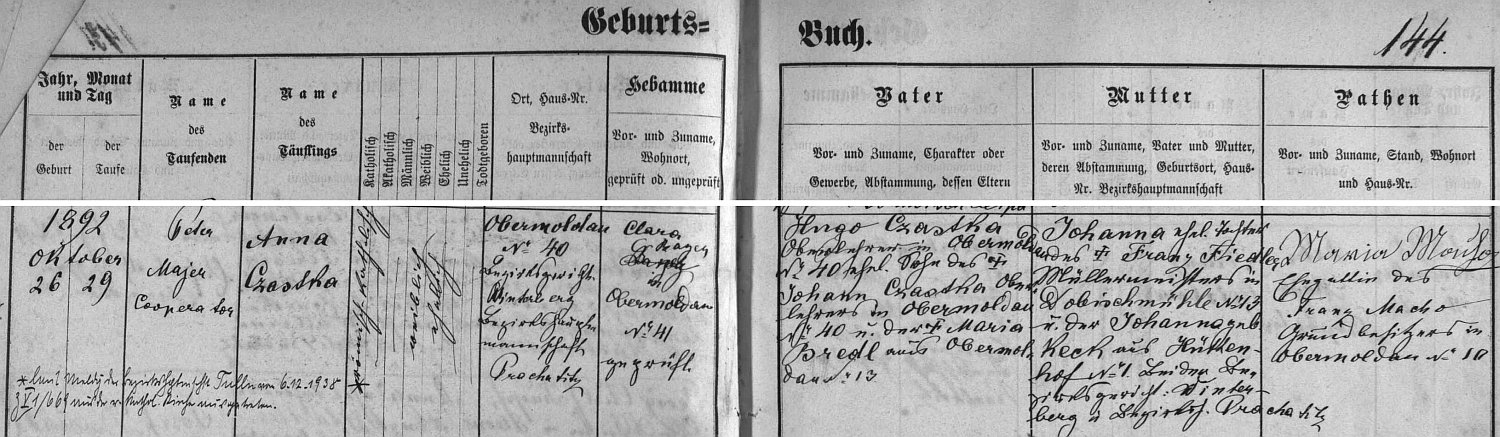 Geburts=
Buch.
144.
Jahr, Monat
und Tag
der
Geburt
der
Taufe
Name
des
Taufenden
Name
des
Täuflings
Katholisch
Akatholisch
Männlich
Weiblich
Ehelich
Unehelich
Todtgeboren
Ort, Haus-Nr.
Bezirks-
hauptmannschaft
Hebamme
Vor- und Zuname,
Wohnort,
geprüft od. ungeprüft
Vater
Vor- und Zuname, Charakter oder
Gewerbe, Abstammung, dessen Eltern
Mutter
Vor- und Zuname, Vater und Mutter,
deren Abstammung, Geburtsort, Haus-
Nr. Bezirkshauptmannschaft
Pathen
Vor- und Zuname, Stand, Wohnort
und Haus-Nr.
1892
Oktober
26 29
Peter
Majer
Cooperator
Anna
Czastka
römisch katholisch
weiblich
ehelich
Obermoldau
No 40
Bezirksgericht
Winterberg
Bezirkshaupt
mannschaft
Prachatitz
Clara
in
Obermoldau
No 41
geprüft.
Hugo Czastka
Oberlehrer in Obermoldau
No 40 ehel. Sohn des †
Johann Czastka Ober
lehrers in Obermoldau
No 40 u. der † Maria
Bredl aus Obermol
dau No 13
Johanna ehel. Tochter
des † Franz Fiedler
Müllermeisters in
Dobischmühle No 13
u. der Johanna geb
Keck aus Hütten-
hof No 1. Beides Be-
zirksgericht: Winter-
berg u Bezirksh. Prachatitz
Maria
Ehegattin des
Franz Macho
Grundbesitzers in
Obermoldau No 10
* laut Meldg der Bezirkshptmsch. Tulln von 6.12.1938
aus der r. kathol. Kirche ausgetreten.